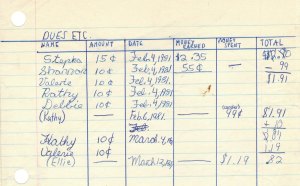 DUES ETC.
NAME AMOUNT DATE MONEY EARNED MONEY SPENT TOTAL
15¢ Feb. 4, 1981 $2.35
Shannon 10¢ Feb. 4, 1981 55¢ — 99
Valerie 10¢ Feb. 4, 1981 $1.91
Kathy 10¢ Feb. 4, 1981
Debbie 10¢ Feb. 4, 1981
(Kathy) — Feb. 6, 1981 — 99¢ $1.91
Kathy 10¢ March 4,
Valerie 10¢ 1.19
(Ellie) — March 13, — $1.19 82